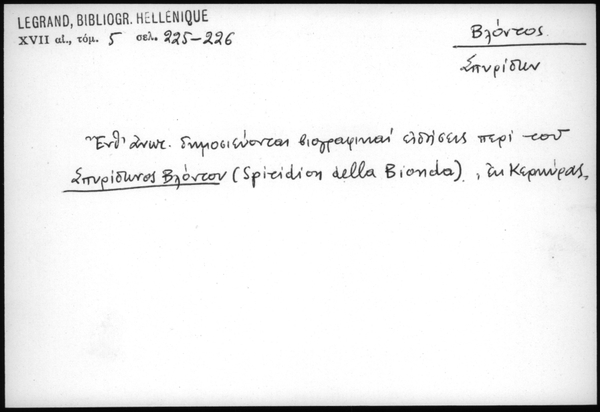 LEGRAND, BIBLIOGR. HELLÉNIQUE
XVII αἰ., τόμ. 5 σελ. 225-226
Βλόντος
Σπυρίδων
Ἔνθ' ἀνωτ. δημοσιεύονται βιογραφικαί εἰδήσεις περί τοῦ
Σπυρίδωνος Βλόντου (Spiridion della Bionda), ἐκ Κερκύρας.